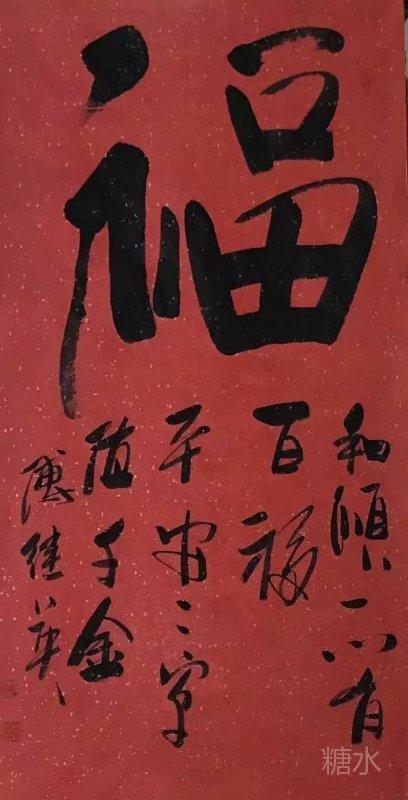 福
和順一门有
百福
平安二字
值千金
继英
糖水